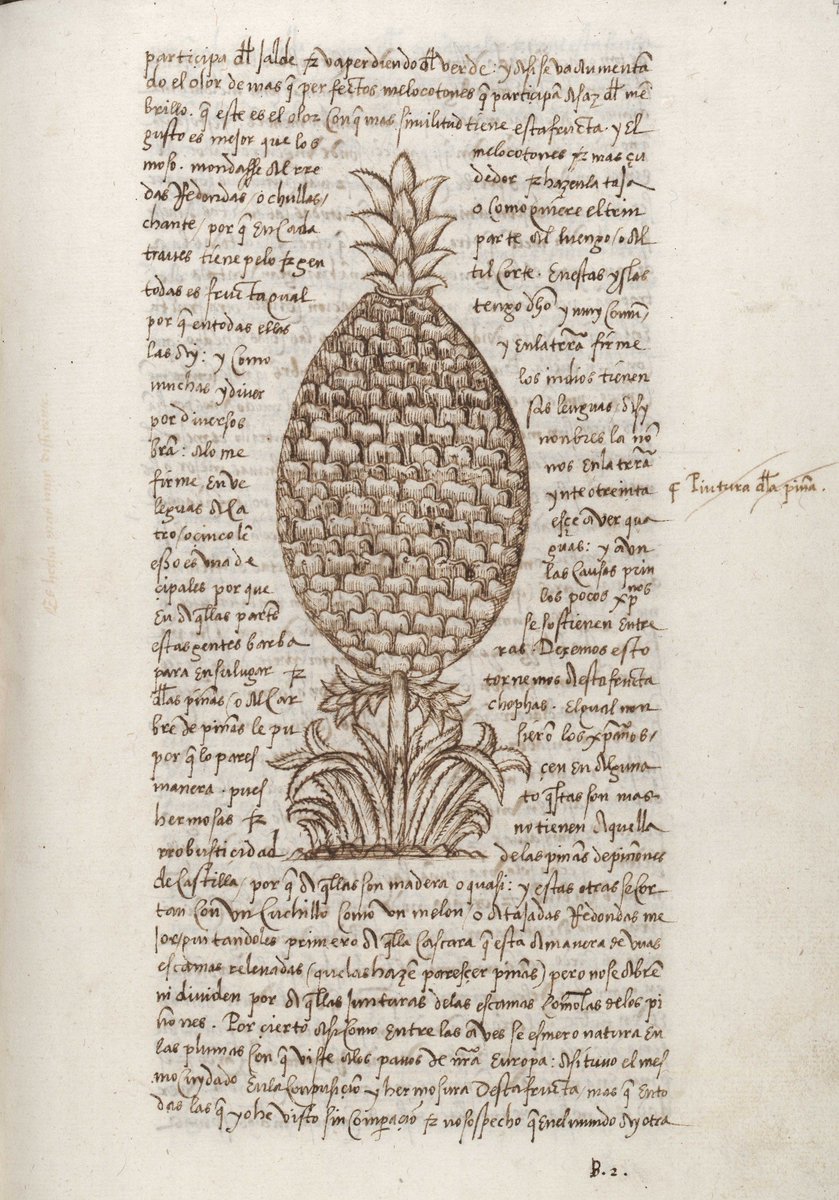 participa dl̃ jalde & va perdiendo dl̃ verde: y asi se va aumentã
do el olor de mas q̃ perfectos melocotones q̃ participã asaz dl̃ mẽ
brillo. q̃ este es el olor con q̃ mas similitud tiene esta fructa. y El
gusto es mejor que los melocotones & mas çu
moso. mondasse Al rre dedor & hazenla taja
das Redondas / o chullas / o como quiere el trin
chante / por q̃ En Cada parte Al luengo / o Al
traues tiene pelo & gen til corte. En estas yslas
todas es fructa qual tengo dho y muy comũ /
por q̃ en todas ellas y en la trr̃a firme
las Ay: y como los indios tienen
muchas y diuer sas lenguas Asy
por diuersos nonbres la nõ
brã: Alo me nos En la trr̃a
firme En ve ynte o treinta
leguas Ala esçe aver qua
tro / o çinco lẽ guas: y avn
esso es vna de las causas prin
çipales por que los pocos xp̃nos
En Aq̃llas partes se sostienen Entre
estas gentes barba ras. Dexemos esto
para En su lugar & tornemos A esta fructa
dl̃las piñas / o Alcar chophas. El qual non
bre de piñas le pu sierõ los xp̃anos /
por q̃ lo pares çen En Alguna
manera. pues to q̃stas son mas
hermosas & no tienen Aquella
rrobusticidad de las piñas de piñones
de Castilla / por q̃ Aq̃llas son madera o quasi: y estas otras se cor
tan con vn cuchillo como vn melon / o A tajadas Redondas me
jor / quitandoles primero Aq̃lla cascara q̃ esta A manera de vnas
escamas releuadas (que las hazẽ paresçer piñas) pero no se Abrẽ
ni diuiden por Aq̃llas junturas de las escamas com̃o las de los pi
ñones. Por çierto Asi como Entre las aves se esmero natura En
las plumas con q̃ viste Alos pauos de nr̃a Europa: Asi tuvo el mes
mo cuydado En la composiçiõ y hermosura Desta fructa / mas q̃ En to
das las q̃ yo he visto sin comparaçiõ & no sospecho q̃ en el mundo Ay otra
¶ Pintura dl̃a piña.
B. 2.